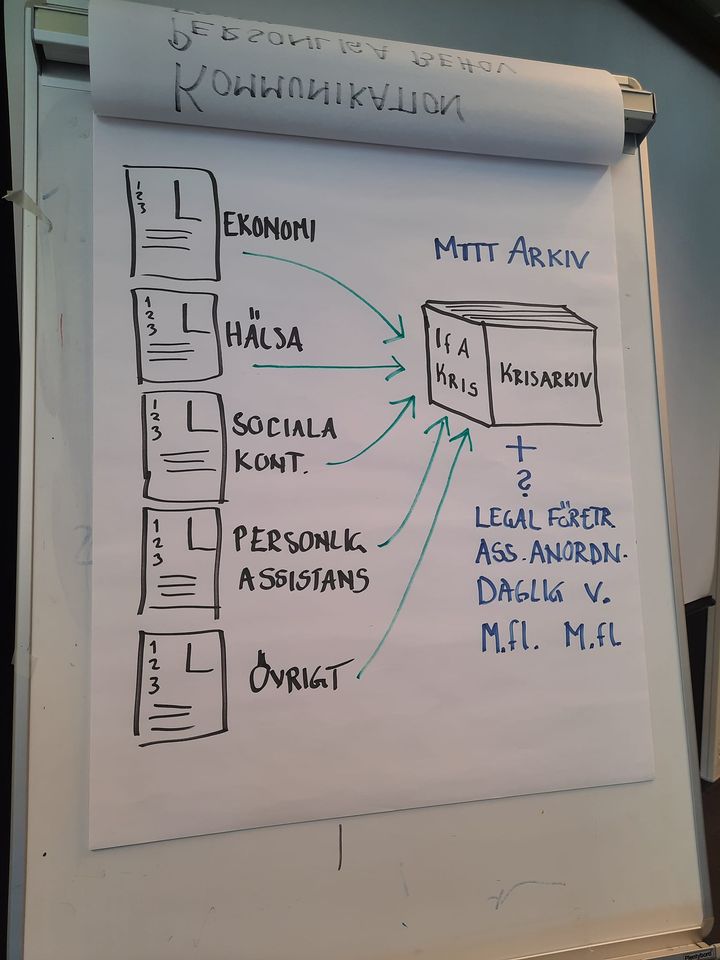 PERSONLIGA BEHOV
KOMMUNIKATION
1
2
3
L
EKONOMI
1
2
3
L
HÄLSA
1
2
3
L
SOCIALA
KONT.
1
2
3
L
PERSONLIG
ASSISTANS
1
2
3
L
ÖVRIGT
MITT ARKIV
IfA
KRIS
KRISARKIV
+
?
LEGAL FÖRETR
ASS. ANORDN.
DAGLIG V.
M.fl. M.fl